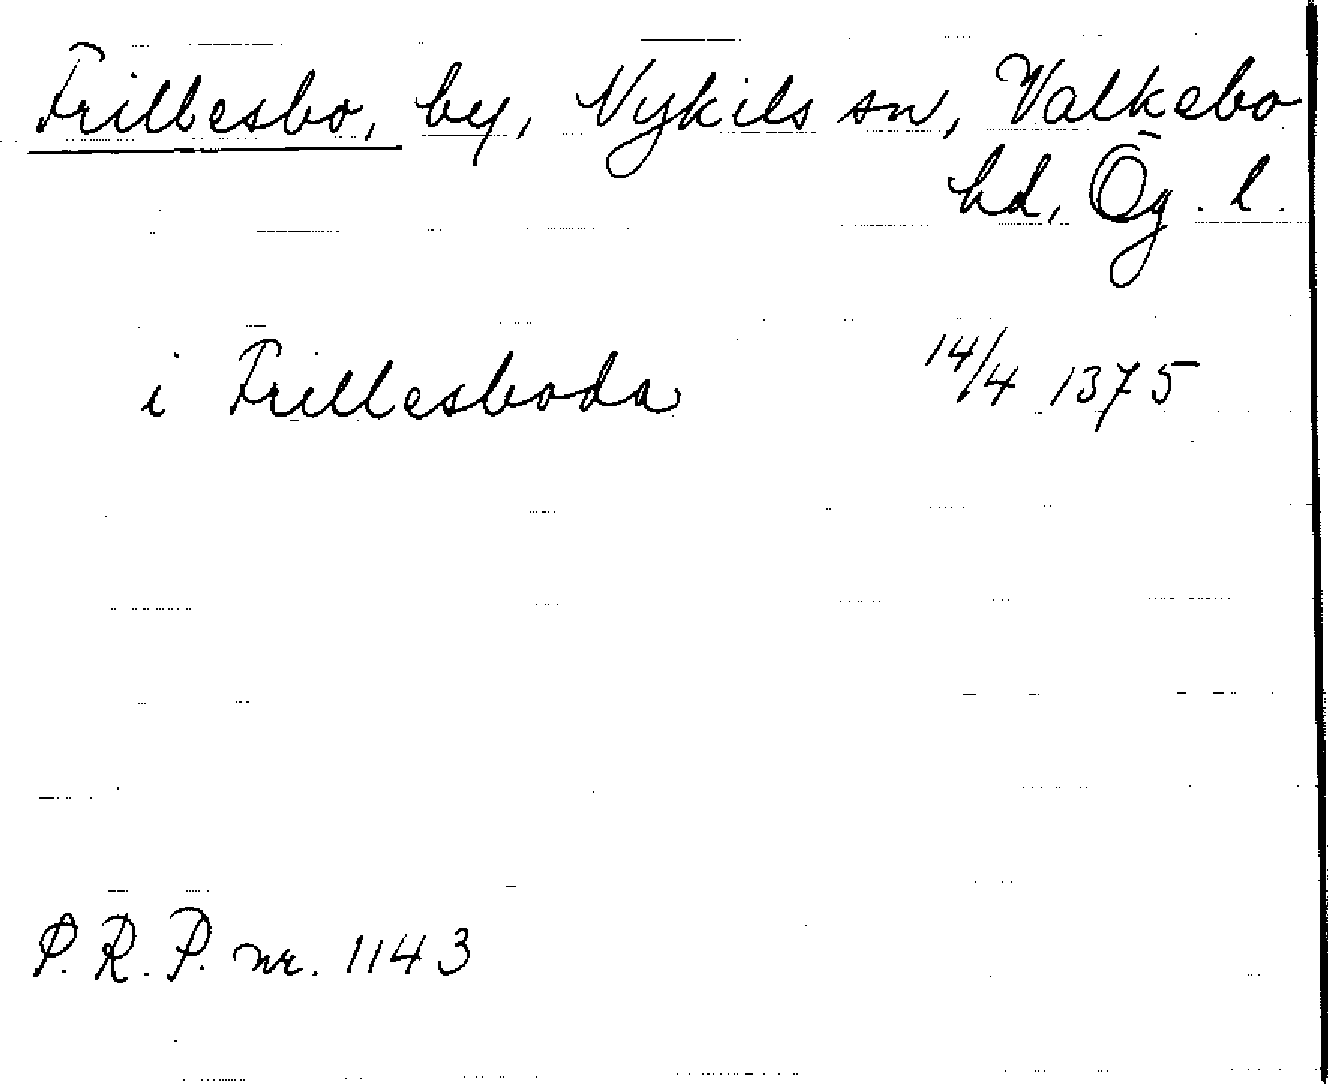 Frillesbo, by, Nykils sn, Valkebo
hd, Ög. l.
i Frillesboda 14/4 1375
P. R. P. nr. 1143